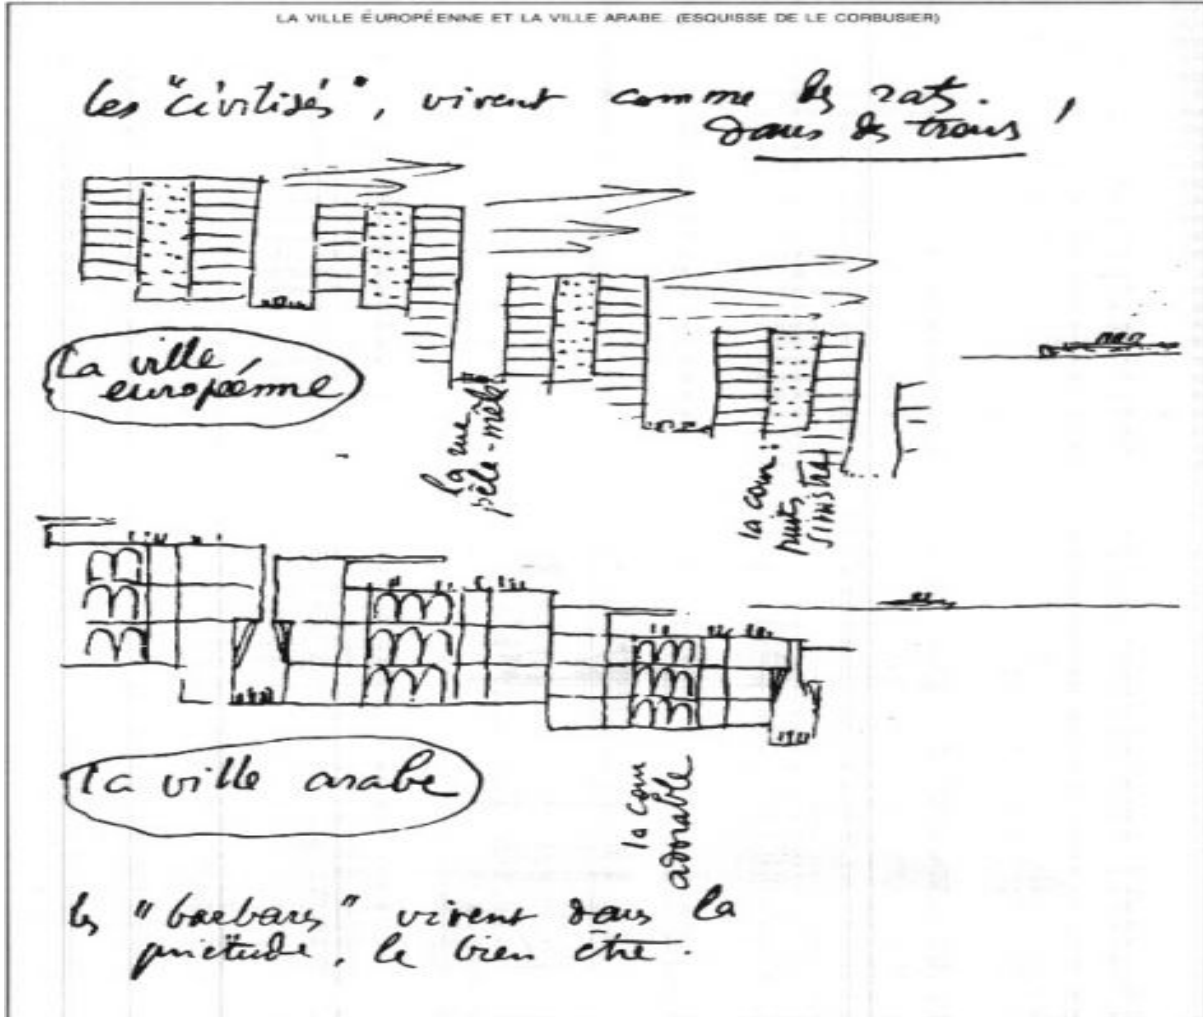 LA VILLE EUROPÉENNE ET LA VILLE ARABE. (ESQUISSE DE LE CORBUSIER)
les "civilisés", vivent comme les rats.
dans des trous !
la ville
européenne
la rue
pêle-mêle
la cour :
puits
sinistre
la ville arabe
la cour
adorable
les "barbares" vivent dans la
quiétude, le bien être.